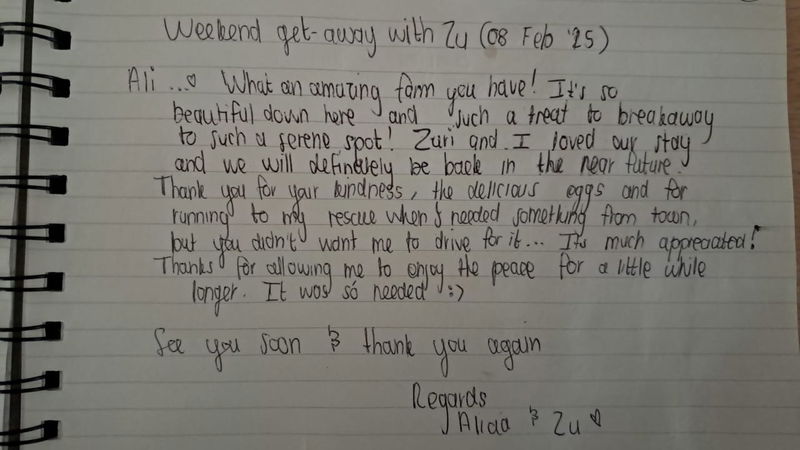 Weekend get-away with Zu (08 Feb '25)
Ali ...♡ What an amazing farm you have! It's so
beautiful down here and such a treat to breakaway
to such a serene spot! Zuri and I loved our stay
and we will definitely be back in the near future.
Thank you for your kindness, the delicious eggs and for
running to my rescue when I needed something from town,
but you didn't want me to drive for it... It's much appreciated!
Thanks for allowing me to enjoy the peace for a little while
longer. It was so needed :)
See you soon & thank you again
Regards
& Zu ♡